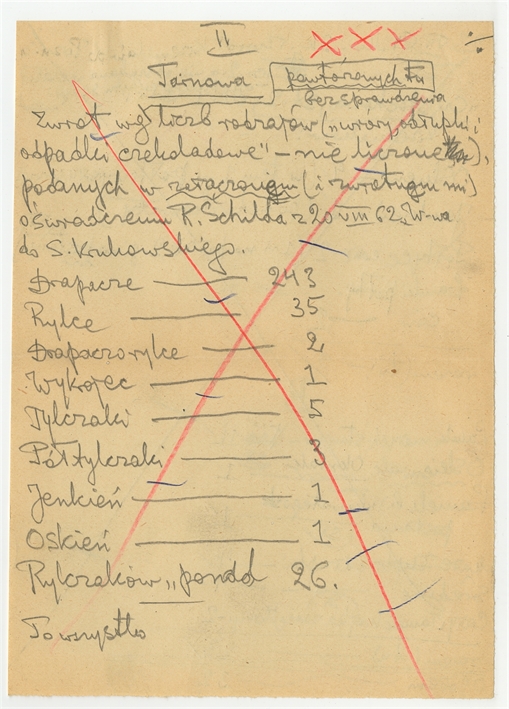 II
Tarnowa
powtórzonych tu
bez sprawdzenia
Zwrot wg liczb rodzajów („wióry, odłupki i
odpadki czekoladowe" – nie liczone),
podanych w załączonym (i zwrotnym mi)
oświadczeniu R. Schilda z 20 VIII 62. W-wa
do S. Krukowskiego.
Drapacze — 243
Rylce — 35
Drapaczorylce — 2
Wykrojec — 1
Tylczaki — 5
Półtylczaki — 3
Jenkień — 1
Oskień — 1
Rylczaków „ponad 26.
To wszystko